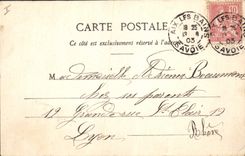 CARTE POSTALE
Ce côté est exclusivement réservé à l'adresse
AIX-LES-BAINS
SAVOIE
03
AIX-LES-BAINS
SAVOIE
03
10
Mademoiselle
Chez ses parents
12 Grande rue St Clair 12
Lyon
Rhône